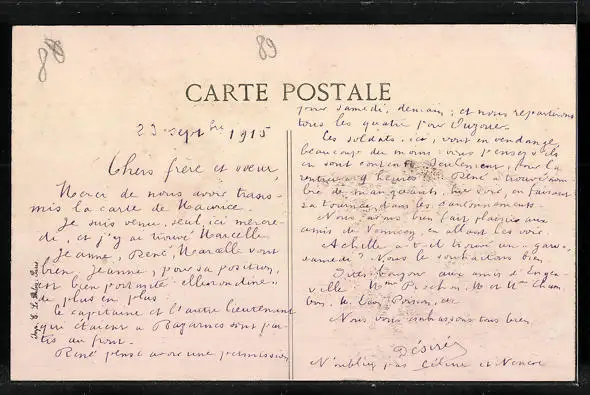 89
CARTE POSTALE
23 septbre 1915
Chers frère et soeur,
Merci de nous avoir trans-
mis la carte de Maurice.
Je suis venu, seul, ici mercre-
di, et j'y ai trouvé Marcelle,
Jeanne, René. Marcelle vont
bien. Jeanne, pour sa position,
est bien portante : elle rondine
de plus en plus.
Le capitaine et l'autre lieutenant
qui étaient à Bazarnes sont par-
tis au front.
René pense avoir une permission
pour samedi, demain ; et nous repartirons
tous les quatre pour Ouzouer.
Les soldats, ici, vont en vendange,
beaucoup du moins : vous pensez s'ils
en sont contents. Seulement, pour la
rentrée à 9 heures René a trouvé nom-
bre de manquants, hier soir, en faisant
sa tournée dans les cantonnements.
Nous avons bien fait plaisir aux
amis de en allant les voir.
Achille a-t-il trouvé un "gare",
samedi ? Nous le souhaitons bien.
Bonjour aux amis
ville : Mme M. et Mme Cham-
bon, M. Poisson, etc
Nous vous embrassons tous bien.
Désiré
N'oubliez pas Céline et